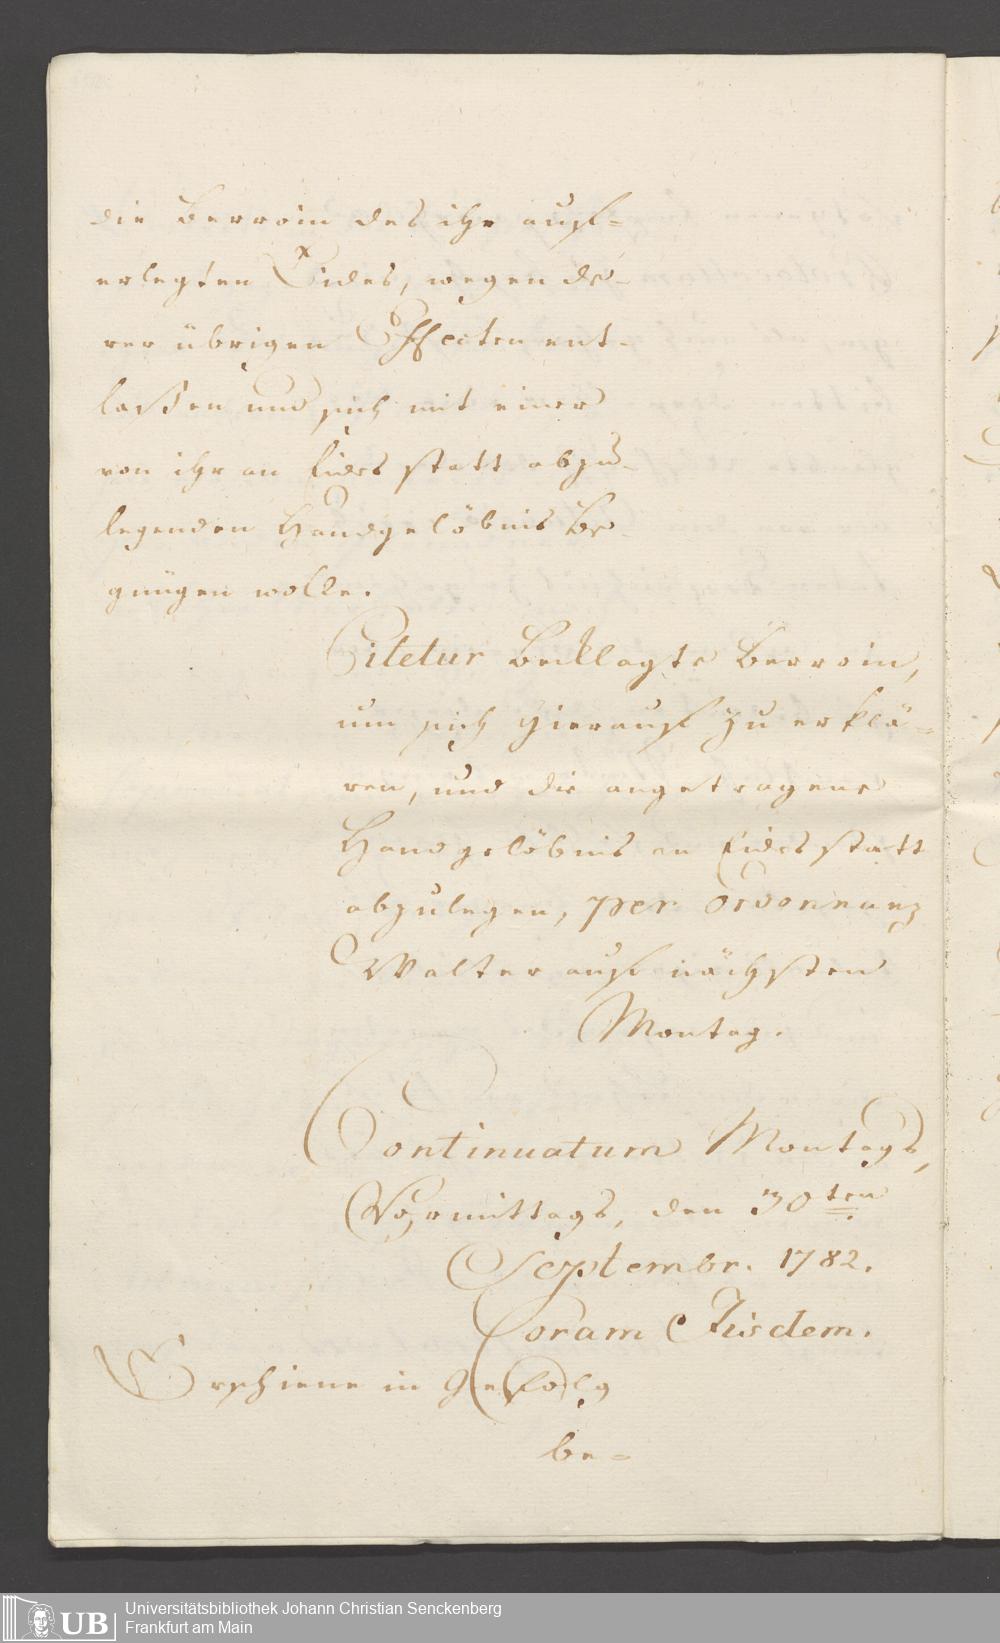 die Berroin des ihr auf-
erlegten Eides, wegen de-
rer übrigen Effecten ent-
laßen und sich mit einer
von ihr an Eides statt abzu-
legenden Handgelöbnis be-
gnügen wolle.
Citetur Becklagte Berroin,
um sich hierauf zu erklä-
ren, und die angetragene
Handgelöbnis an Eidesstatt
abzulegen, per Ordonnanz
Walter auf nächsten
Montag.
Continuatum Montags,
Vormittags, den 30ten
Septembr. 1782.
Coram Iisdem.
Erschiene in Gefolg
be-
UB
Universitätsbibliothek Johann Christian Senckenberg
Frankfurt am Main